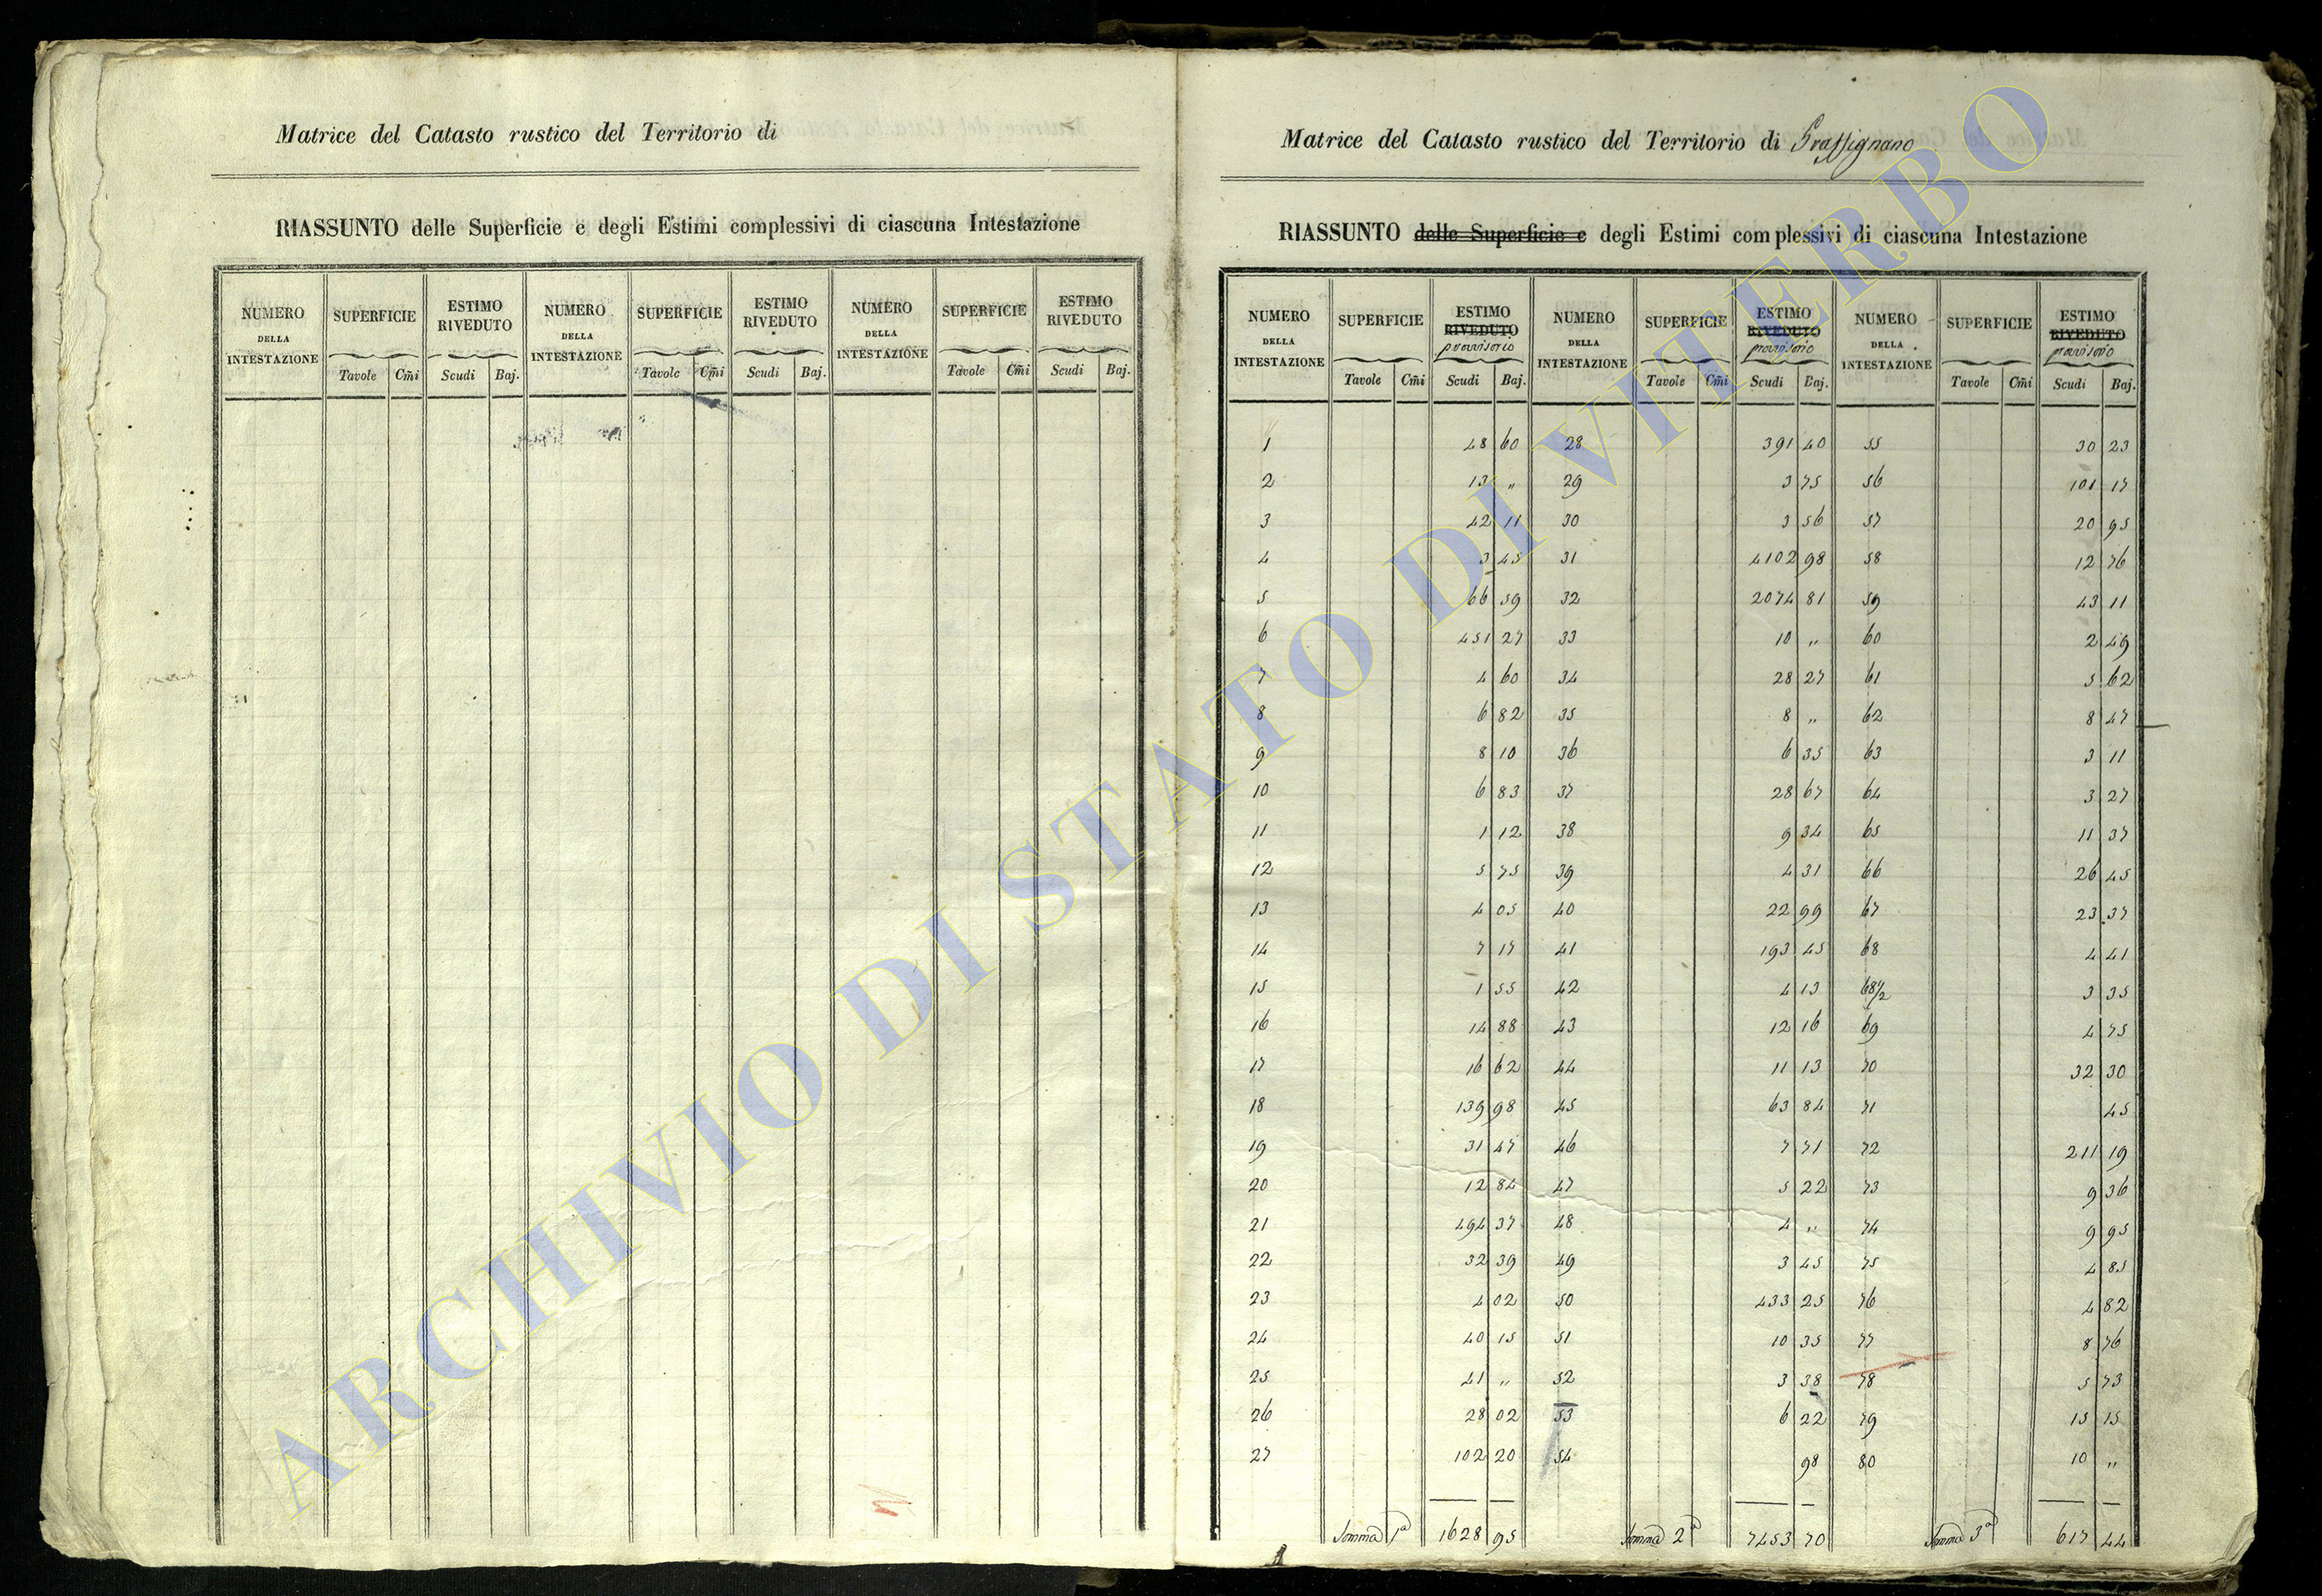 Matrice del Catasto rustico del Territorio di
RIASSUNTO delle Superficie e degli Estimi complessivi di ciascuna Intestazione
NUMERO DELLA INTESTAZIONE SUPERFICIE ESTIMO RIVEDUTO NUMERO DELLA INTESTAZIONE SUPERFICIE ESTIMO RIVEDUTO NUMERO DELLA INTESTAZIONE SUPERFICIE ESTIMO RIVEDUTO
Tavole Cm̃i Scudi Baj. Tavole Cm̃i Scudi Baj. Tavole Cm̃i Scudi Baj.
Matrice del Catasto rustico del Territorio di Grassignano
RIASSUNTO delle Superficie e degli Estimi complessivi di ciascuna Intestazione
NUMERO DELLA INTESTAZIONE SUPERFICIE ESTIMO RIVEDUTO provvisorio NUMERO DELLA INTESTAZIONE SUPERFICIE ESTIMO RIVEDUTO provvisorio NUMERO DELLA INTESTAZIONE SUPERFICIE ESTIMO RIVEDUTO provvisorio
Tavole Cm̃i Scudi Baj. Tavole Cm̃i Scudi Baj. Tavole Cm̃i Scudi Baj.
1 48 60 28 391 40 55 30 23
2 13 „ 29 3 75 56 101 17
3 42 11 30 3 56 57 20 95
4 3 45 31 4102 98 58 12 76
5 66 59 32 2074 81 59 43 11
6 451 27 33 10 „ 60 2 49
7 4 60 34 28 27 61 5 62
8 6 82 35 8 „ 62 8 47
9 8 10 36 6 35 63 3 11
10 6 83 37 28 67 64 3 27
11 1 12 38 9 34 65 11 37
12 5 75 39 4 31 66 26 45
13 4 05 40 22 99 67 23 37
14 7 17 41 193 45 68 4 41
15 1 55 42 4 13 68 1/2 3 35
16 14 88 43 12 16 69 4 75
17 16 62 44 11 13 70 32 30
18 139 98 45 63 84 71 45
19 31 47 46 7 71 72 211 19
20 12 84 47 5 22 73 9 36
21 494 37 48 4 „ 74 9 95
22 32 39 49 3 45 75 4 85
23 4 02 50 433 25 76 4 82
24 40 15 51 10 35 77 8 76
25 41 „ 52 3 38 78 5 73
26 28 02 53 6 22 79 15 15
27 102 20 54 98 80 10 „
Somma 1ª 1628 95 Somma 2ª 7453 70 Somma 3ª 617 44
ARCHIVIO DI STATO DI VITERBO